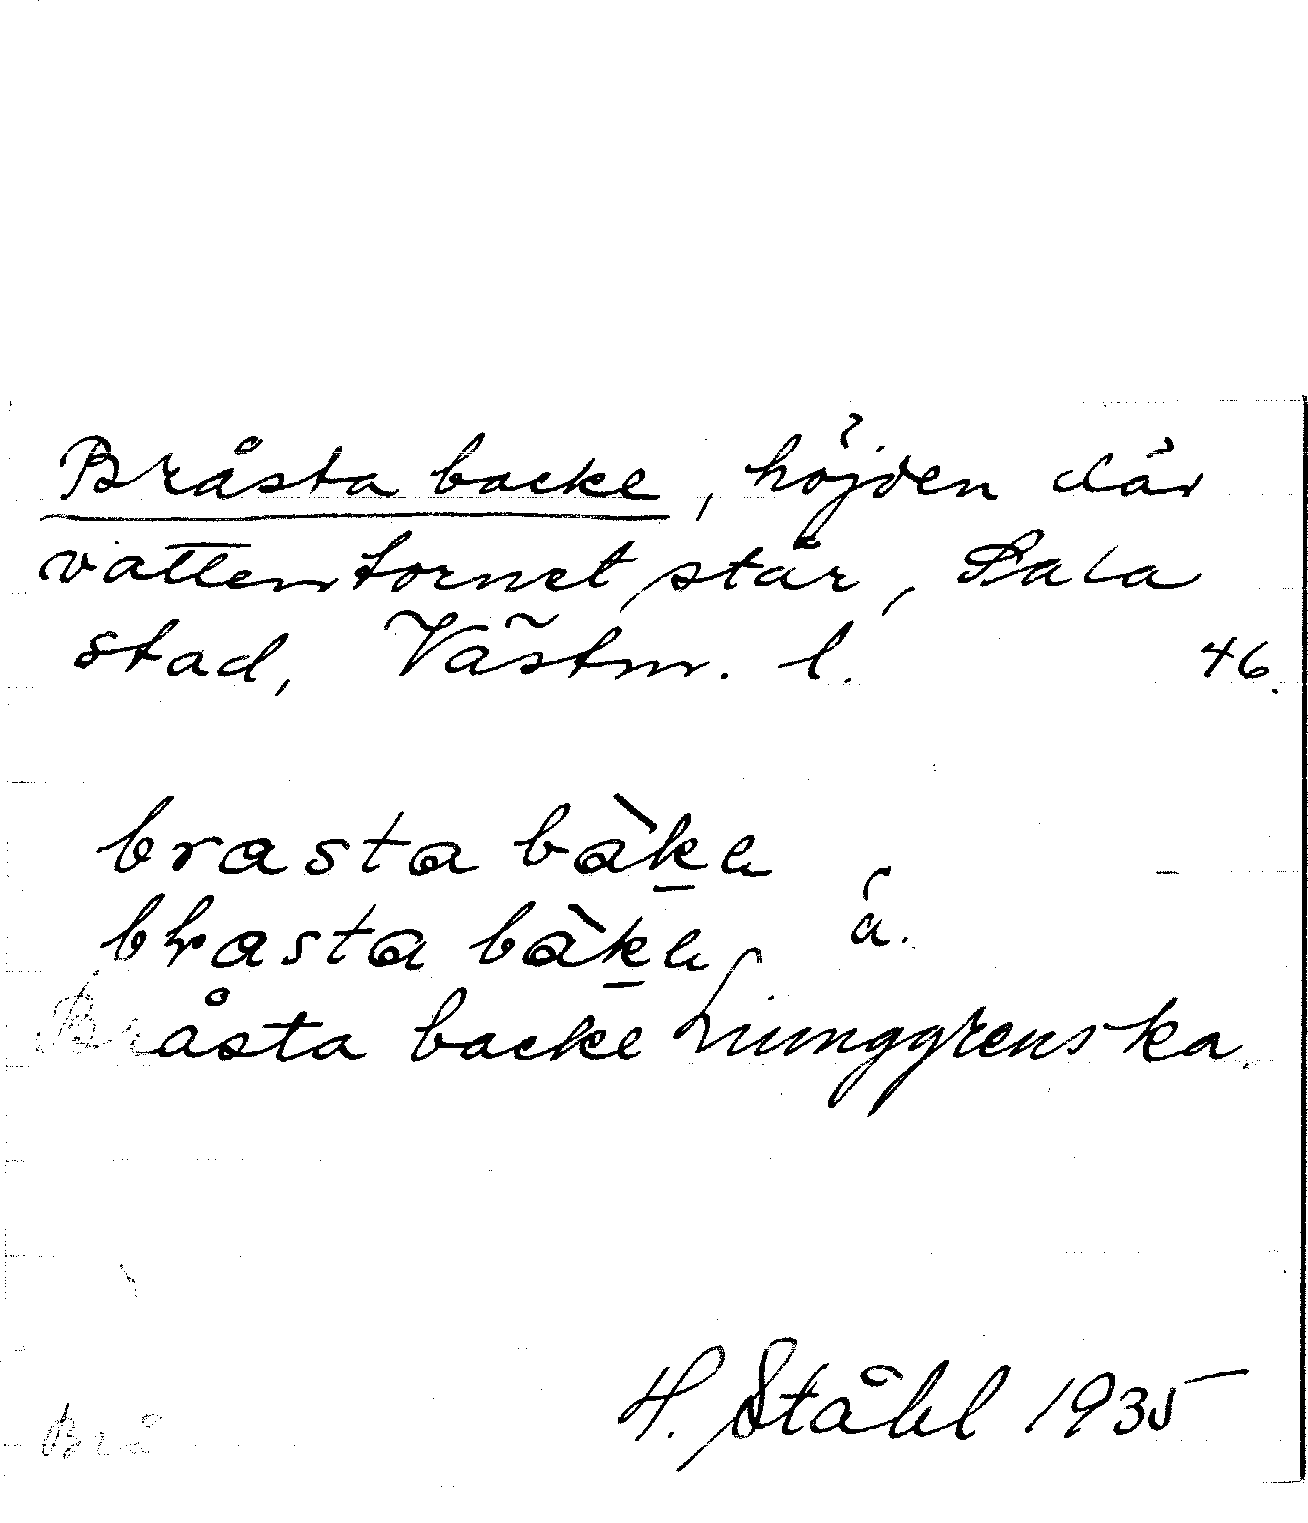 Bråsta backe, höjden där
vattentornet står, Sala
stad, Västm. l. 46.
brasta bàke
brasta bàke á.
Bråsta backe Liunggrenska.
H. Ståhl 1935
Brå